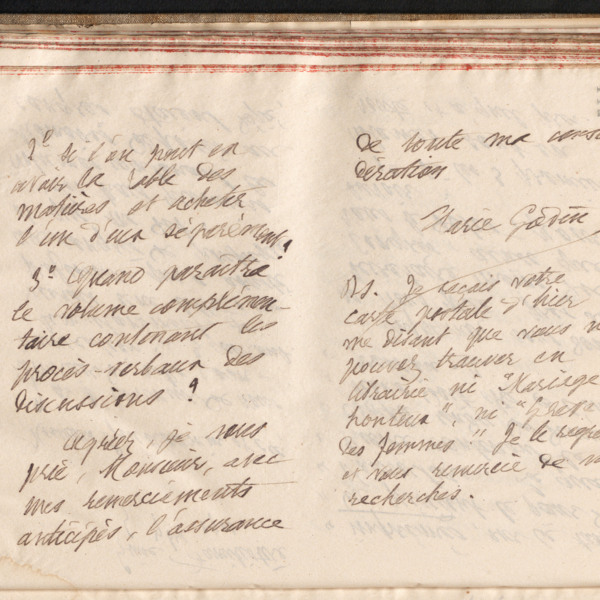 2º si l'on peut en
avoir la table des
matières et acheter
l'un d'eux séparément ?
3º Quand paraîtra
le volume complémen-
taire contenant les
procès-verbaux des
discussions ?
Agréez, je vous
prie, Monsieur, avec
mes remerciements
anticipés, l'assurance
de toute ma consi
dération
Marie Godin
PS. Je reçois votre
carte postale d'hier
me disant que vous n
pouvez trouver en
librairie ni "Mariage
honteux", ni "Grève
des femmes". Je le regre
et vous remercie de
recherches.